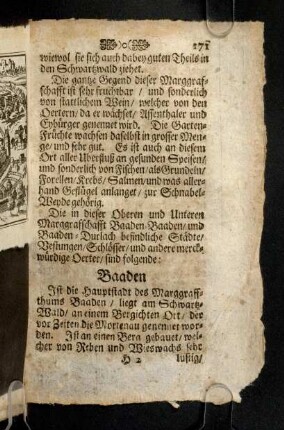 171
wiewol sie sich auch dabey guten Theils in
den Schwartzwald ziehet.
Die gantze Gegend dieser Marggraf-
schafft ist sehr fruchtbar / und sonderlich
von stattlichem Wein / welcher von den
Oertern / da er wächset / Affenthaler und
Eybürger genennet wird. Die Garten-
Früchte wachsen daselbst in grosser Men-
ge / und sehr gut. Es ist auch an diesem
Ort aller Uberfluß an gesunden Speisen /
und sonderlich von Fischen / als Grundeln /
Forellen / Krebs / Salmen / und was aller-
hand Geflügel anlanget / zur Schnabel-
Weyde gehörig.
Die in dieser Oberen und Unteren
Marggrafschafft Baaden-Baaden / und
Baaden-Durlach befindliche Städte /
Vestungen / Schlösser / und andere merck-
würdige Oerter / sind folgende:
Baaden
Ist die Hauptstadt des Marggraff-
thums Baaden / liegt am Schwartz-
Wald / an einem Bergichten Ort / der
vor Zeiten die Mortenau genennet wor-
den. Ist an einen Berg gebauet / wel-
cher von Reben und Wieswachs sehr
H 2 lustig /